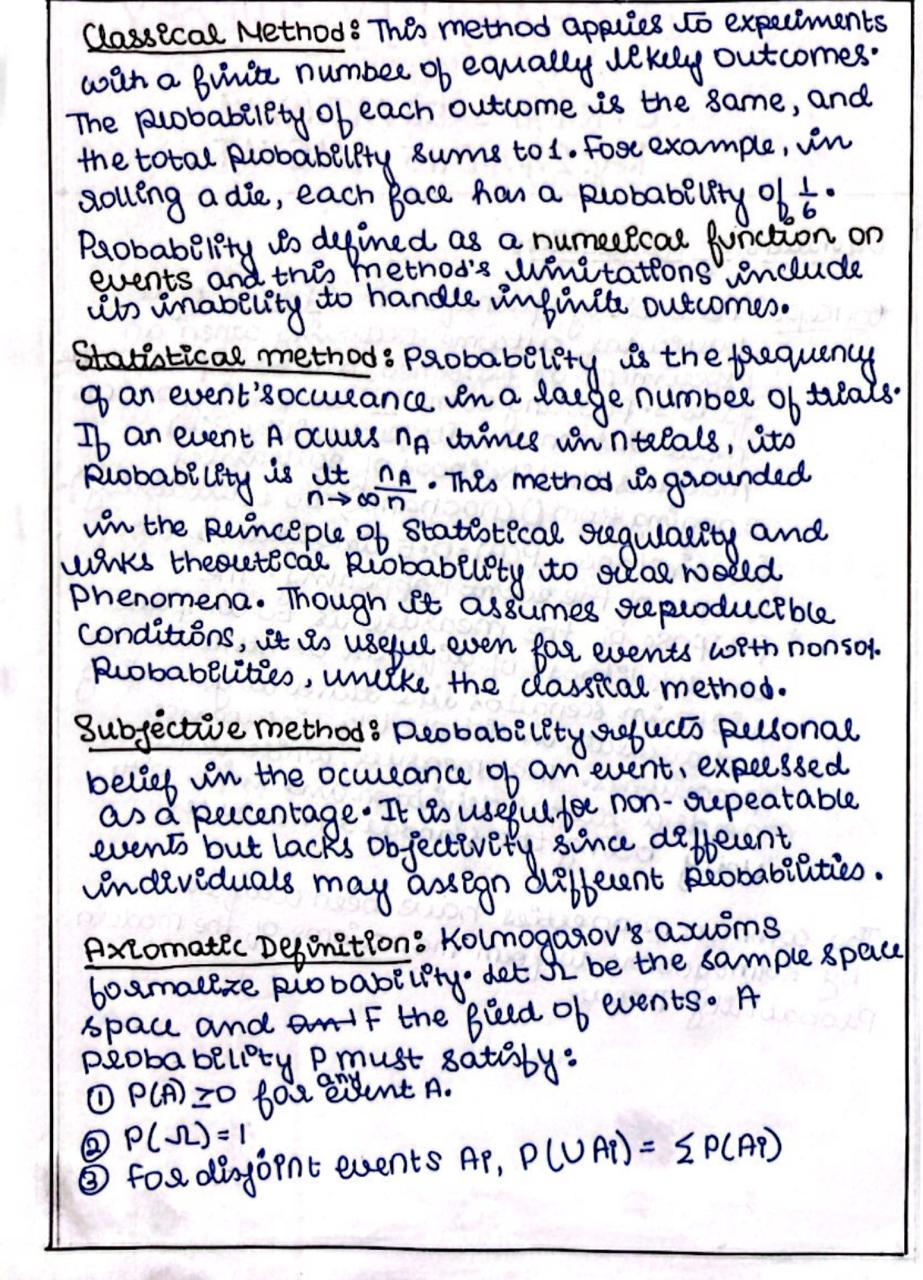 Classical Method: This method applies to experiments
with a finite number of equally likely outcomes.
The probability of each outcome is the same, and
the total probability sums to 1. For example, in
rolling a die, each face has a probability of 1/6.
Probability is defined as a numerical function on
events and this method's limitations include
its inability to handle infinite outcomes.
Statistical method: Probability is the frequency
of an event's occurance in a large number of trials.
If an event A occurs n_A times in n trials, its
Probability is lt n→∞ n_A/n. This method is grounded
in the Principle of Statistical regularity and
links theoretical Probability to real world
Phenomena. Though it assumes reproducible
conditions, it is useful even for events with non 50%
Probabilities, unlike the classical method.
Subjective method: Probability reflects personal
belief in the occurance of an event, expressed
as a percentage. It is useful for non-repeatable
events but lacks objectivity since different
individuals may assign different probabilities.
Axiomatic Definition: Kolmogarov's axioms
formalize probability. Let Ω be the sample space
space and F the field of events. A
probability P must satisfy:
① P(A) ≥ 0 for any event A.
② P(Ω) = 1
③ For disjoint events Ai, P(∪Ai) = Σ P(Ai)